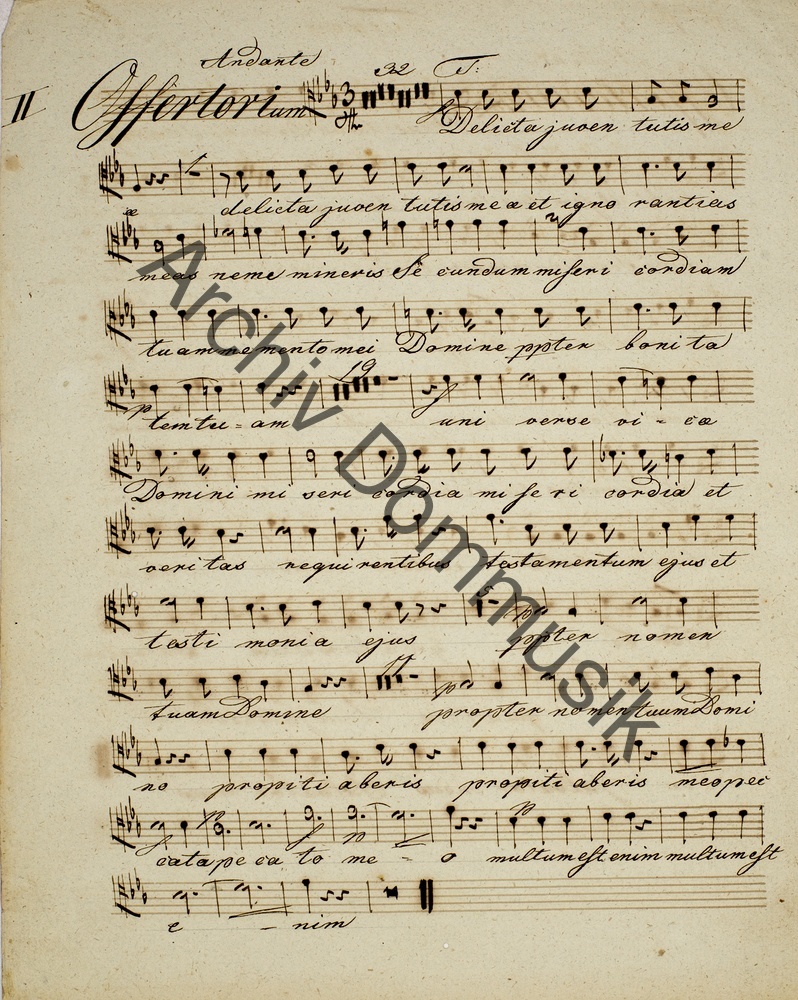 Andante
32 T:
II Offertorium
Delicta juven tutis me
æ delicta juven tutis mea et igno rantias
meas neme mineris Se cundum miseri cordiam
tuam memento mei Domine ppter boni ta
19
p temtu = am uni verse vi - cæ
Domini mi seri cordia mi se ri cordia et
veri tas requirentibus testamentum ejus et
5 pp
testi monia ejus ppter nomen
11 p
tuam Domine propter nomen tuum Domi
no propiti aberis propiti aberis meo pec
cata pe ca to me - o multum est enim multum est
e - nim
Archiv Dommusik